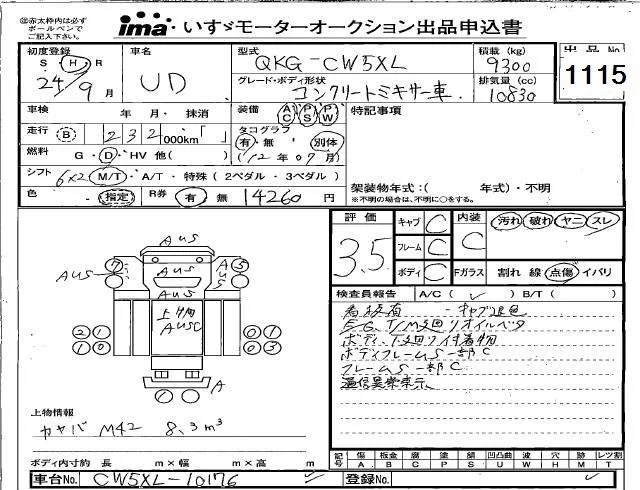 ㊟赤太枠内は必ず
ボールペンで
ご記入下さい。
ima いすゞモーターオークション出品申込書
初度登録 車名 型式 積載 (kg) 出品No
S H R
24 9月 UD QKG-CW5XL 9300 1115
グレード・ボディ形状 排気量 (cc)
コンクリートミキサー車 10830
車検 年 月・抹消 装備 AC PS PW 特記事項
走行 B 232000km「 」 タコグラフ
有・無 別体
燃料 G・D・HV 他( ) (12年07月)
シフト 6x2 M/T・A/T・特殊(2ペダル・3ペダル) 架装物年式:( 年式)・不明
※不明の場合は、不明に○をする。
色 ・指定 R券 有 無 14260円
評価 キャブ C 内装 汚れ 破れ ヤニ スレ
3.5 フレーム C C
ボディ C Fガラス 割れ 線 点傷 イバリ
検査員報告 A/C( ✓ ) B/T( )
看板有 -キャブ退色
EG,T/M廻リオイルベタ
ボディ、下廻リ付着物
ボディフレームS一部C
フレームS一部C
通信異常表示
AUS
7 AUS 5
AUS AUS
上物同
AUSC
21 01
10 03
A
1
上物情報
カヤバ M42 8.3m³
ボディ内寸約 長 m×幅 m×高 m
記号 傷 板金 腐 塗 錆 凹凸曲 波 穴 跡 レンズ割
A. B. C. P. S. U W H M T
車台No. CW5XL-10176 登録No.